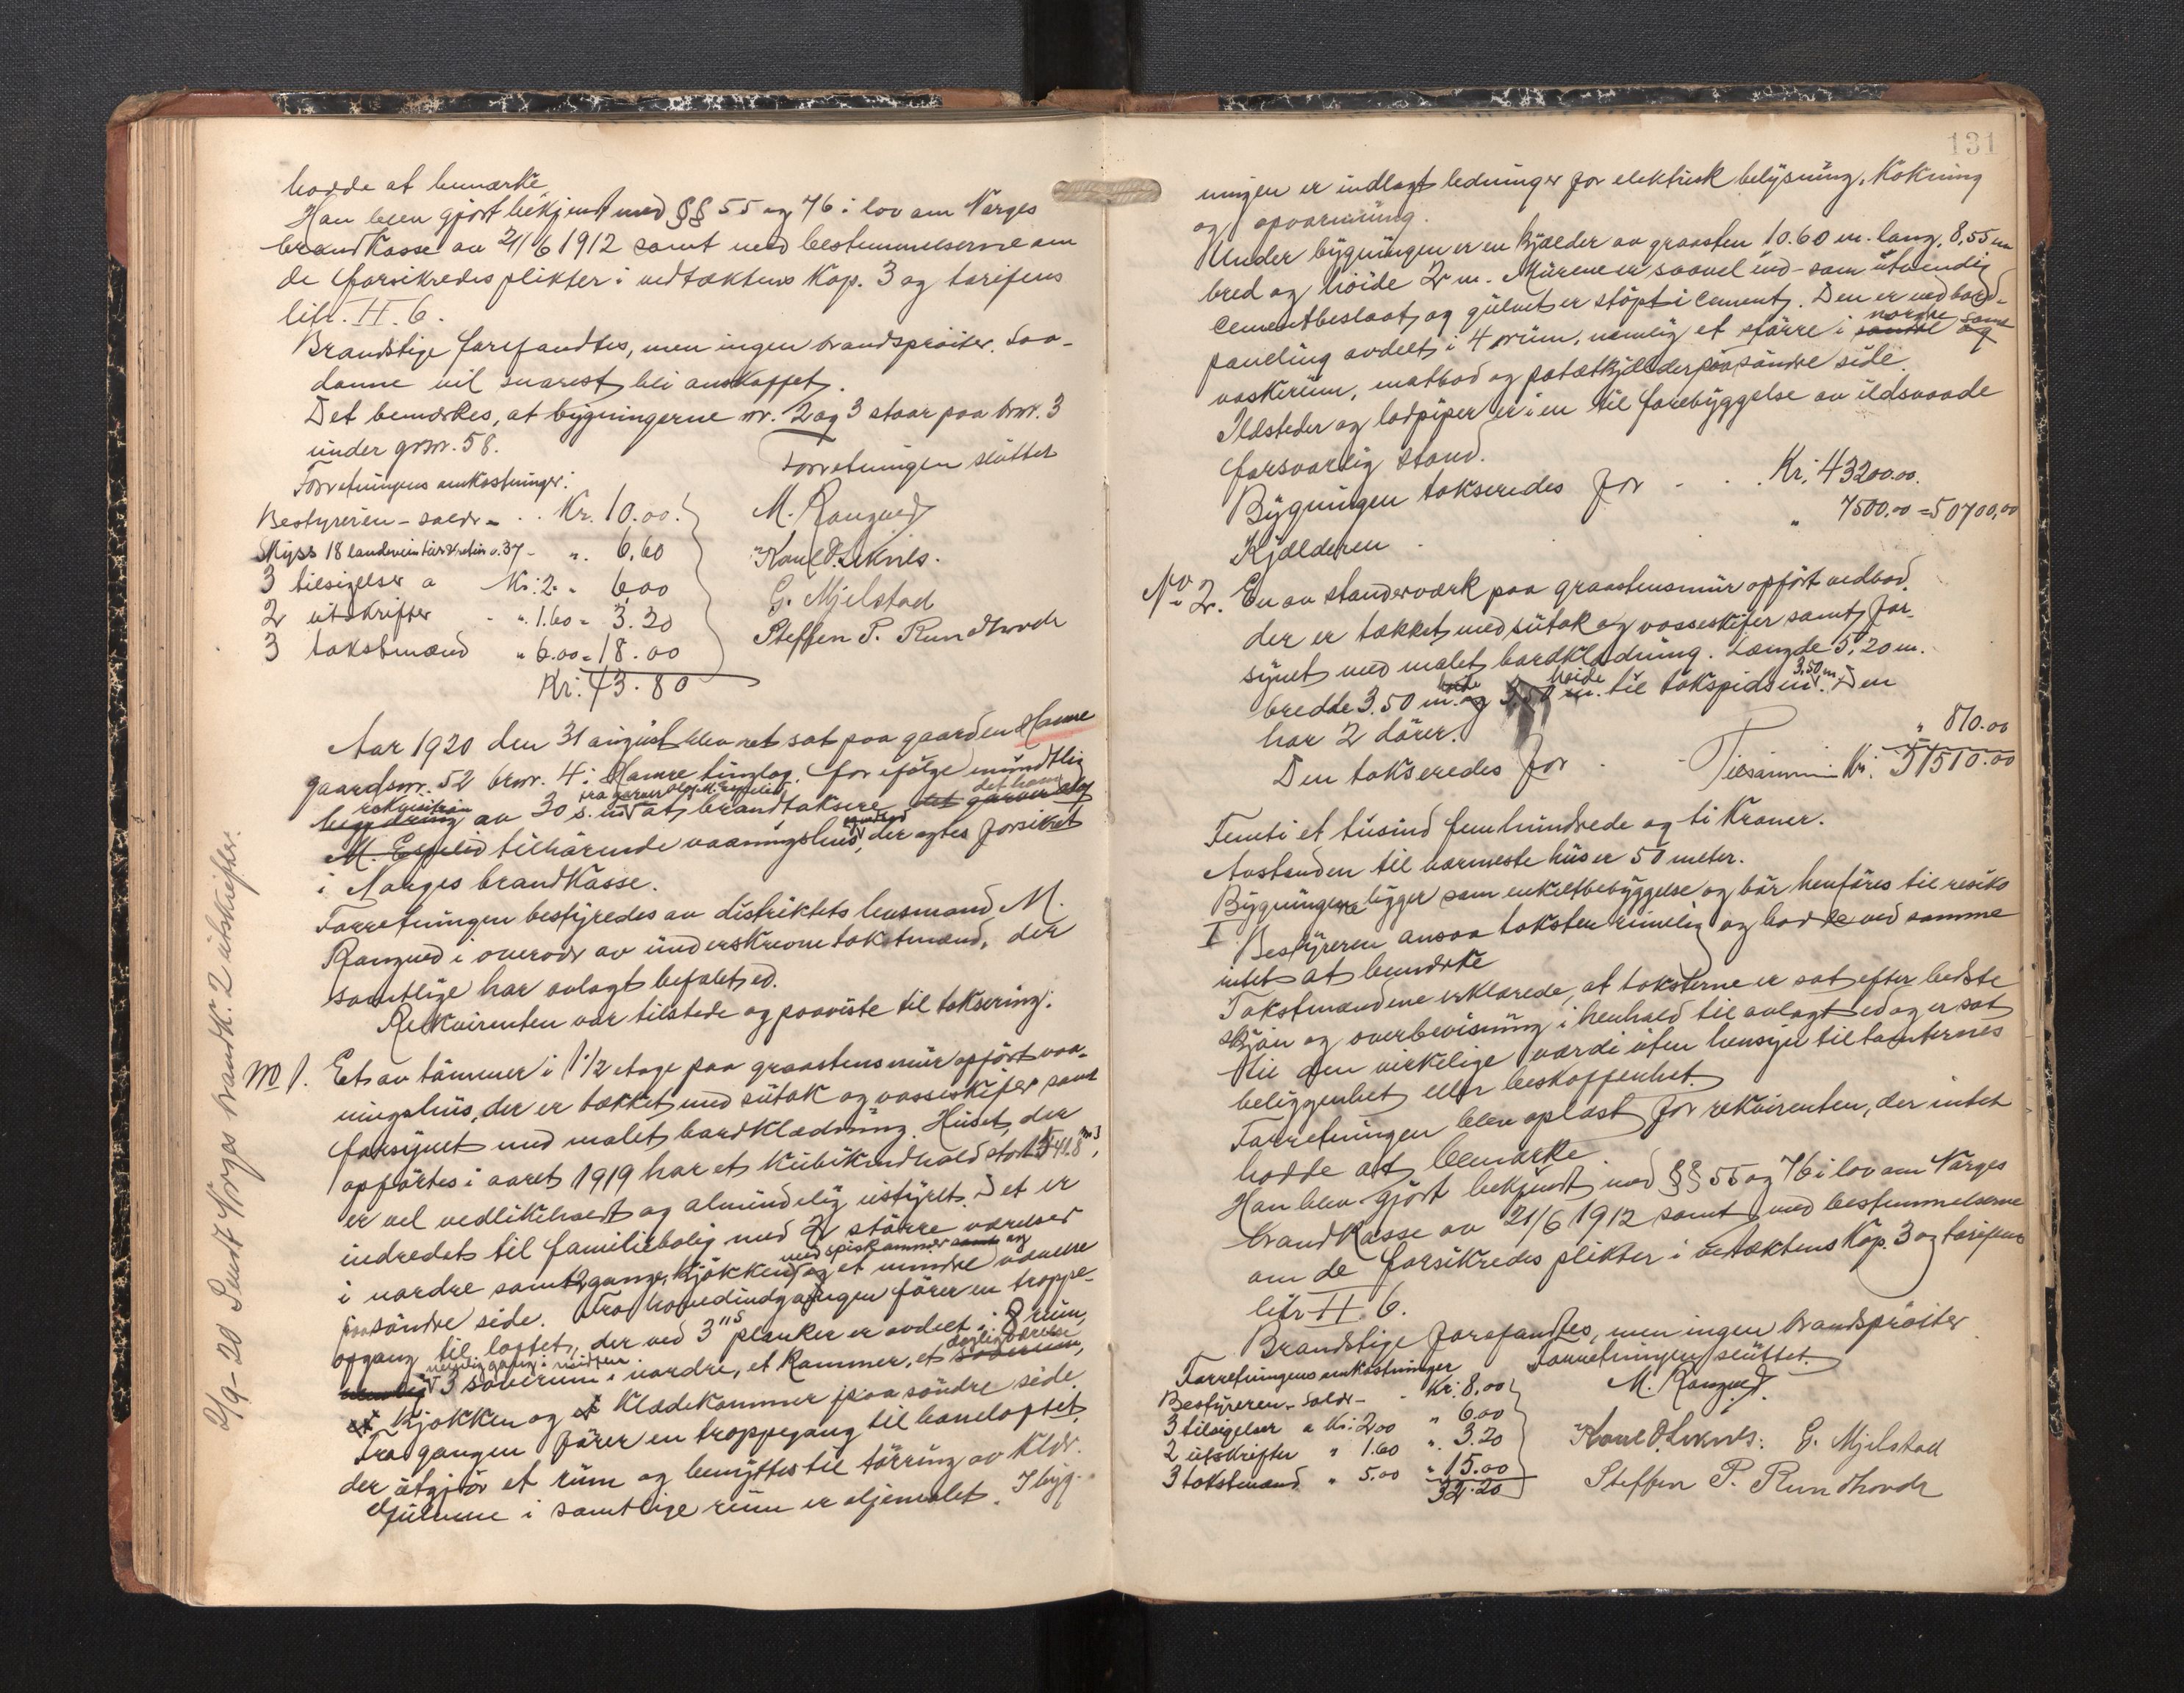 hadde at bemærke.
Han blev gjort bekjent med §§ 55 og 76 i lov om Norges
brandkasse av 21/6 1912 samt med bestemmelserne om
de forsikredes plikter i vedtæktens Kap. 3 og tarifens
litr. II. 6.
Brandstige forefandtes, men ingen brandsprøiter. Saa-
danne vil snarest bli anskaffet.
Det bemerkes, at bygningerne nr. 2 og 3 staar paa brnr. 3
under grnr. 58.
Forretningen sluttet
Forretningens omkostninger:
Bestyreren - salær - . . Kr. 10.00.
Skyss 18 landevei - " 6.60
3 tilsigelser a Kr: 2. " 6,00
2 utskrifter " 1.60 " 3.20
3 takstmænd " 6.00 " 18.00
Kr: 43.80
M. Rangued
Karl O. Leknes.
G. Mjelstad
Steffen P. Rundhovde
Aar 1920 den 31 august blev ret sat paa gaarden Hamre
gaardsnr. 52 brnr. 4 i Hamre tinglag for ifølge mundtlig
rekvisition fra garver Olaf M. Espelid det ham
begjæring av 30 s. m. at brandtaksere det garver Olaf
M. Espelid tilhørende vaaningshus, der agtes forsikret
i Norges brandkasse.
Forretningen bestyredes av distriktets lensmand M.
Rangued i overvær av underskrevne takstmænd, der
samtlige har avlagt befalet ed.
Rekvirenten var tilstede og paaviste til taksering:
No 1. Et av tømmer i 1 1/2 etage paa graastensmur opført vaa-
ningshus, der er tækket med sutak og vosseskifer samt
forsynet med malet bordklædning. Huset, der
opførtes i aaret 1919 har et kubikindhold stort 541.8 m3,
er vel vedlikeholdt og almindelig utstyret. Det er
indredet til familiebolig med 2 større værelser
med spiskammer samt og
i nordre samt 2 gange, kjøkken og et mindre værelse
paa søndre side. Fra hovedindgangen fører en trappe-
opgang til loftet, der ved 3" planker er avdelt i 8 rum,
nemlig gang i midten dagligværelse
nemlig 3 soverum i nordre, et kammer, et soverum,
et kjøkken og et klædekammer paa søndre side.
Fra gangen fører en trappegang til haneloftet,
der utgjør et rum og benyttes til tørring av klær.
Gulvene i samtlige rum er oljemalet. I byg-
2/9-20 Sendt Norges brandk. 2 utskrifter.
131
ningen er indlagt ledninger for elektrisk belysning, kokning
og opvarmning.
Under bygningen er en kjælder av graasten 10.60 m. lang, 8,55 m
bred og høide 2 m. Murene er saavel ind- som utvendig
cementbeslaat, og gulvet er støpt i cement. Den er ved bord-
nordre samt
paneling avdelt i 4 rum, nemlig et større i søndre og
vaskerum, matbod og potetkjælder paa søndre side.
Ildsteder og ladpiper er i en til forebyggelse av ildsvaade
forsvarlig stand.
Bygningen takseredes for - . . Kr: 43200.00.
Kjælderen . " 7500.00 = 50700,00
No 2. En av standerværk paa graastensmur opført vedbod,
der er tækket med sutak og vosseskifer samt for-
synet med malet bordklædning. Længde 5,20 m.
høide 3,50 m.
bredde 3.50 m. og til takspidsen. Den
har 2 dører.
Den takseredes for - " 810.00
Tilsammen Kr. 51510.00
Femti et tusind femhundrede og ti kroner.
Avstanden til nærmeste hus er 50 meter.
Bygningerne ligger som enkeltbebyggelse og bør henføres til resiko
I. Bestyreren ansaa taksten rimelig og hadde ved samme
intet at bemerke
Takstmændene erklærede, at taksterne er sat efter bedste
skjøn og overbevisning i henhold til avlagt ed og er sat
til den virkelige værdi uten hensyn til tomternes
beliggenhet eller beskaffenhet.
Forretningen blev oplæst for rekvirenten, der intet
hadde at bemærke
Han blev gjort bekjent med §§ 55 og 76 i lov om Norges
brandkasse av 21/6 1912 samt med bestemmelserne
om de forsikredes plikter i vetæktens Kap. 3 og tarifens
litr II. 6.
Brandstige forefandtes, men ingen brandsprøiter
Forretningens omkostninger
Forretningen sluttet.
Bestyreren - Salær - - Kr: 8,00
3 tilsigelser a Kr: 2.00 " 6.00
2 utskrifter " 1.60 " 3.20
3 takstmænd " 5.00 " 15.00
32.20
M. Rangued.
Karl O. Leknes. G. Mjelstad
Steffen P. Rundhovde